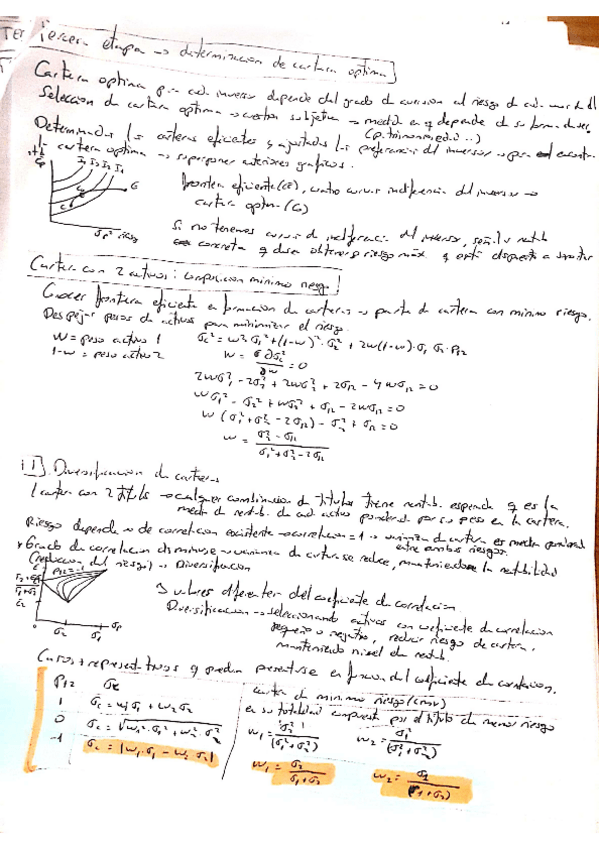 Tercera etapa → determinación de cartera optima
Cartera optima para cada inversor depende del grado de aversion al riesgo de cada uno de ell
Selección de cartera optima → cuestion subjetiva → medida en q depende de su forma de ser.
(p. trimonio, edad...)
Determinadas las carteras eficientes y ajustadas las preferencias del inversor → para encontrar
cartera optima → superponer anteriores graficos.
I4 I3 I2 I1
frontera eficiente (CE), cuatro curvas indiferencia del inversor →
cartera optima (G)
σp² riesgo
Si no tenemos curvas de indiferencia del inversor, señala rentab
concreta q desea obtener o riesgo máx q está dispuesto a soportar
Cartera con 2 activos: composicion minimo riesgo
Conocer frontera eficiente en formación de carteras → parta de cartera con minimo riesgo.
Despejar pesos de activos para minimizar el riesgo.
W = peso activo 1 σc² = w²·σ1² + (1-w)²·σ2² + 2w(1-w)·σ1·σ2·ρ12
1-w = peso activo 2 ∂σc²/∂w = 0
2wσ1² - 2σ2² + 2wσ2² + 2σ12 - 4wσ12 = 0
wσ1² - σ2² + wσ2² + σ12 - 2wσ12 = 0
w (σ1² + σ2² - 2σ12) - σ2² + σ12 = 0
w = σ2² - σ12 / σ1² + σ2² - 2σ12
Diversificacion de carteras
1 cartera con 2 titulos → cualquier combinacion de titulos tiene rentab. esperada q es la
media de rentab. de cada activo ponderada por su peso en la cartera.
Riesgo depende → de correlacion existente → correlacion = 1 → varianza de cartera es media ponderada
entre ambos riesgos.
* Grado de correlacion disminuye → varianza de cartera se reduce, manteniendose la rentabilidad
(reduccion del riesgo) → Diversificación
3 valores diferentes del coeficiente de correlacion
Diversificacion → seleccionando activos con coeficiente de correlacion
pequeño o negativo, reducir riesgo de cartera,
manteniendo nivel de rentab.
0 σ2 σ1 σp
Casos + representativos q puedan presentarse en funcion del coeficiente de correlacion.
ρ12 σc cartera de minimo riesgo (CMV)
1 σc = w1σ1 + w2σ2 en su totalidad compuesta por el titulo de menor riesgo
0 σc = √w1²·σ1² + w2²·σ2² w1 = σ2² / (σ1² + σ2²) w2 = σ1² / (σ1² + σ2²)
-1 σc = |w1·σ1 - w2·σ2| w1 = σ2 / σ1 + σ2 w2 = σ1 / (σ1 + σ2)